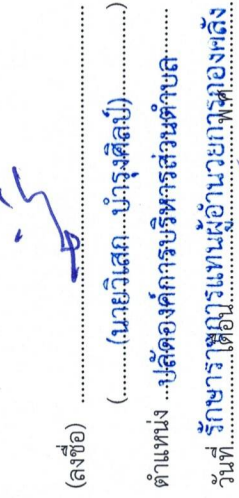 (ลงชื่อ) ................................................
(........(นายวิเสก บำรุงศิลป์)........)
ตำแหน่ง ...ปลัดองค์การบริหารส่วนตำบล......
รักษาราชการแทนผู้อำนวยการกองคลัง
วันที่..............เดือน..............................พ.ศ..............